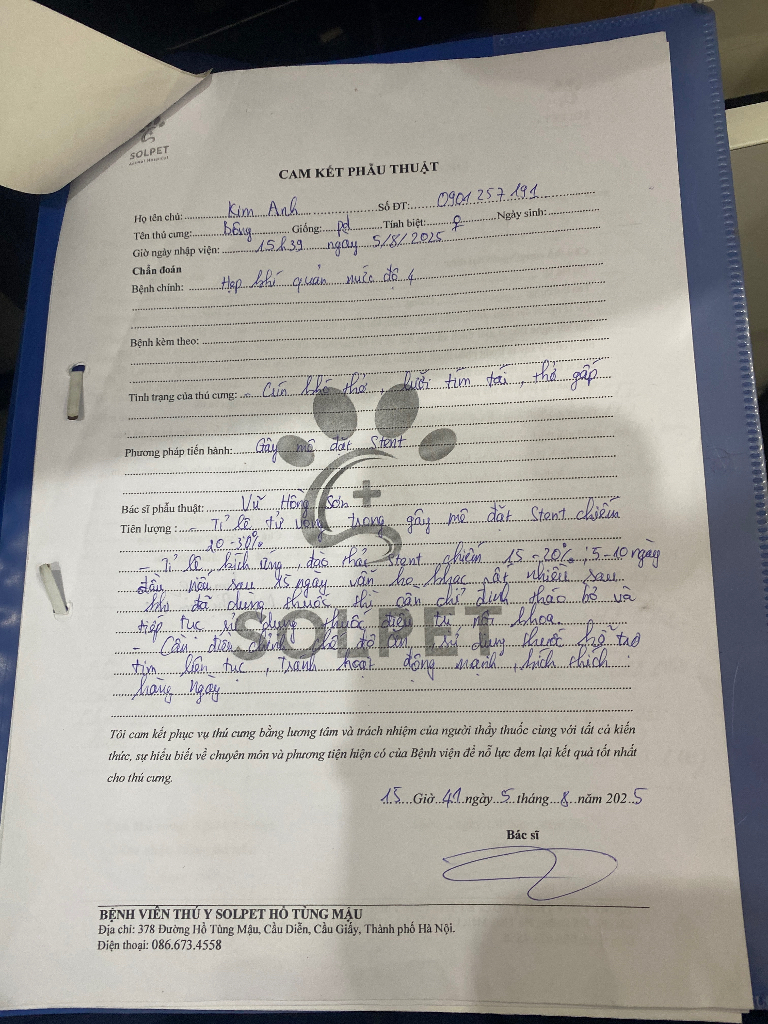 SOLPET
Animal Hospital
CAM KẾT PHẪU THUẬT
Họ tên chủ: Kim Anh Số ĐT: 0901 257 191
Tên thú cưng: Bống Giống: pd Tính biệt: ♀ Ngày sinh:
Giờ ngày nhập viện: 15h39 ngày 5/8/2025
Chẩn đoán
Bệnh chính: Hẹp khí quản mức độ 4
Bệnh kèm theo:
Tình trạng của thú cưng: - Cún khó thở, lưỡi tím tái, thở gấp
Phương pháp tiến hành: Gây mê đặt Stent
Bác sĩ phẫu thuật: Vũ Hồng Sơn
Tiên lượng: - Tỉ lệ tử vong trong gây mê đặt Stent chiếm
20-30%
- Tỉ lệ kích ứng, đào thải stent chiếm 15-20%; 5-10 ngày
đầu nếu sau 15 ngày vẫn ho khạc rất nhiều sau
khi đã dùng thuốc thì cần chỉ định tháo bỏ và
tiếp tục sử dụng thuốc điều trị nội khoa.
- Cần điều chỉnh chế độ ăn, sử dụng thuốc hỗ trợ
tim liên tục, tránh hoạt động mạnh, kích thích
hàng ngày.
SOLPET
Tôi cam kết phục vụ thú cưng bằng lương tâm và trách nhiệm của người thầy thuốc cùng với tất cả kiến
thức, sự hiểu biết về chuyên môn và phương tiện hiện có của Bệnh viện để nỗ lực đem lại kết quả tốt nhất
cho thú cưng.
15 Giờ 41 ngày 5 tháng 8 năm 2025
Bác sĩ
BỆNH VIÊN THÚ Y SOLPET HỒ TÙNG MẬU
Địa chỉ: 378 Đường Hồ Tùng Mậu, Cầu Diễn, Cầu Giấy, Thành phố Hà Nội.
Điện thoại: 086.673.4558